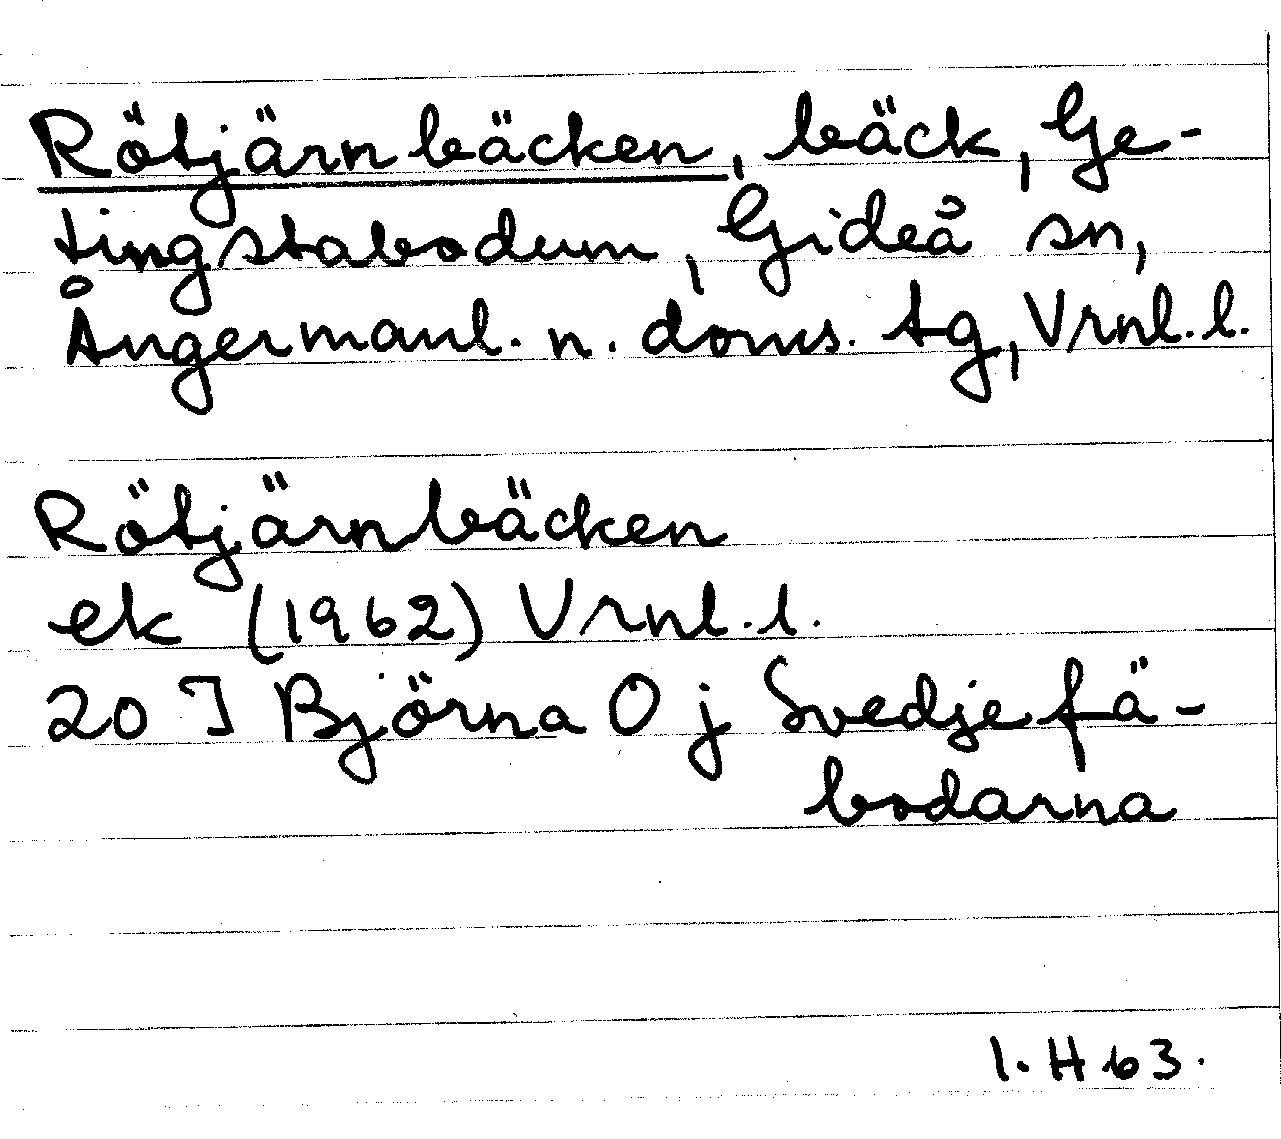 Rötjärnbäcken, bäck, Ge-
tingstabodum, Gideå sn,
Ångermanl. n. doms. tg, Vrnl. l.
Rötjärnbäcken
ek (1962) Vrnl. l.
20 J Björna O j Svedjefä-
bodarna
I. H 63.